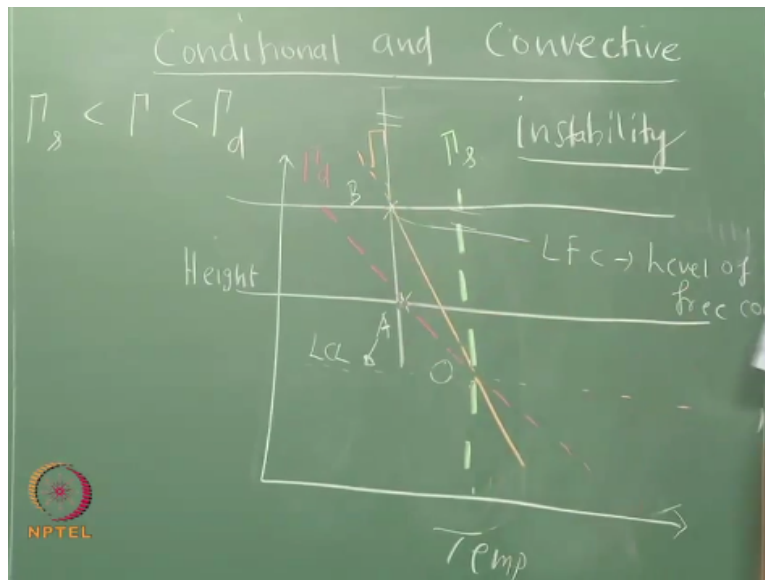 Conditional and Convective
instability
Γs < Γ < Γd
Γd
Γ
Γs
B
LFC → Level of
free co
Height
A
LCL
O
Temp
NPTEL